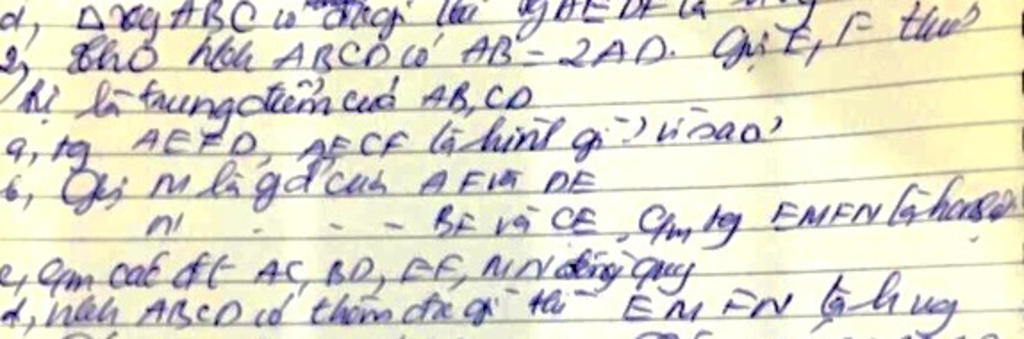 d, Δ ABC có đk gì thì tg AEDF là
2, Cho hbh ABCD có AB = 2AD. Gọi E, F thứ
tự là trung điểm của AB, CD
a, tg AEFD, AECF là hình gì? vì sao?
b, Gọi M là gđ của AF và DE
N - - - BF và CE, Cm tg EMFN là
c, Cm các đt AC, BD, EF, MN đồng quy
d, hbh ABCD có thêm đk gì thì EMFN là h vg